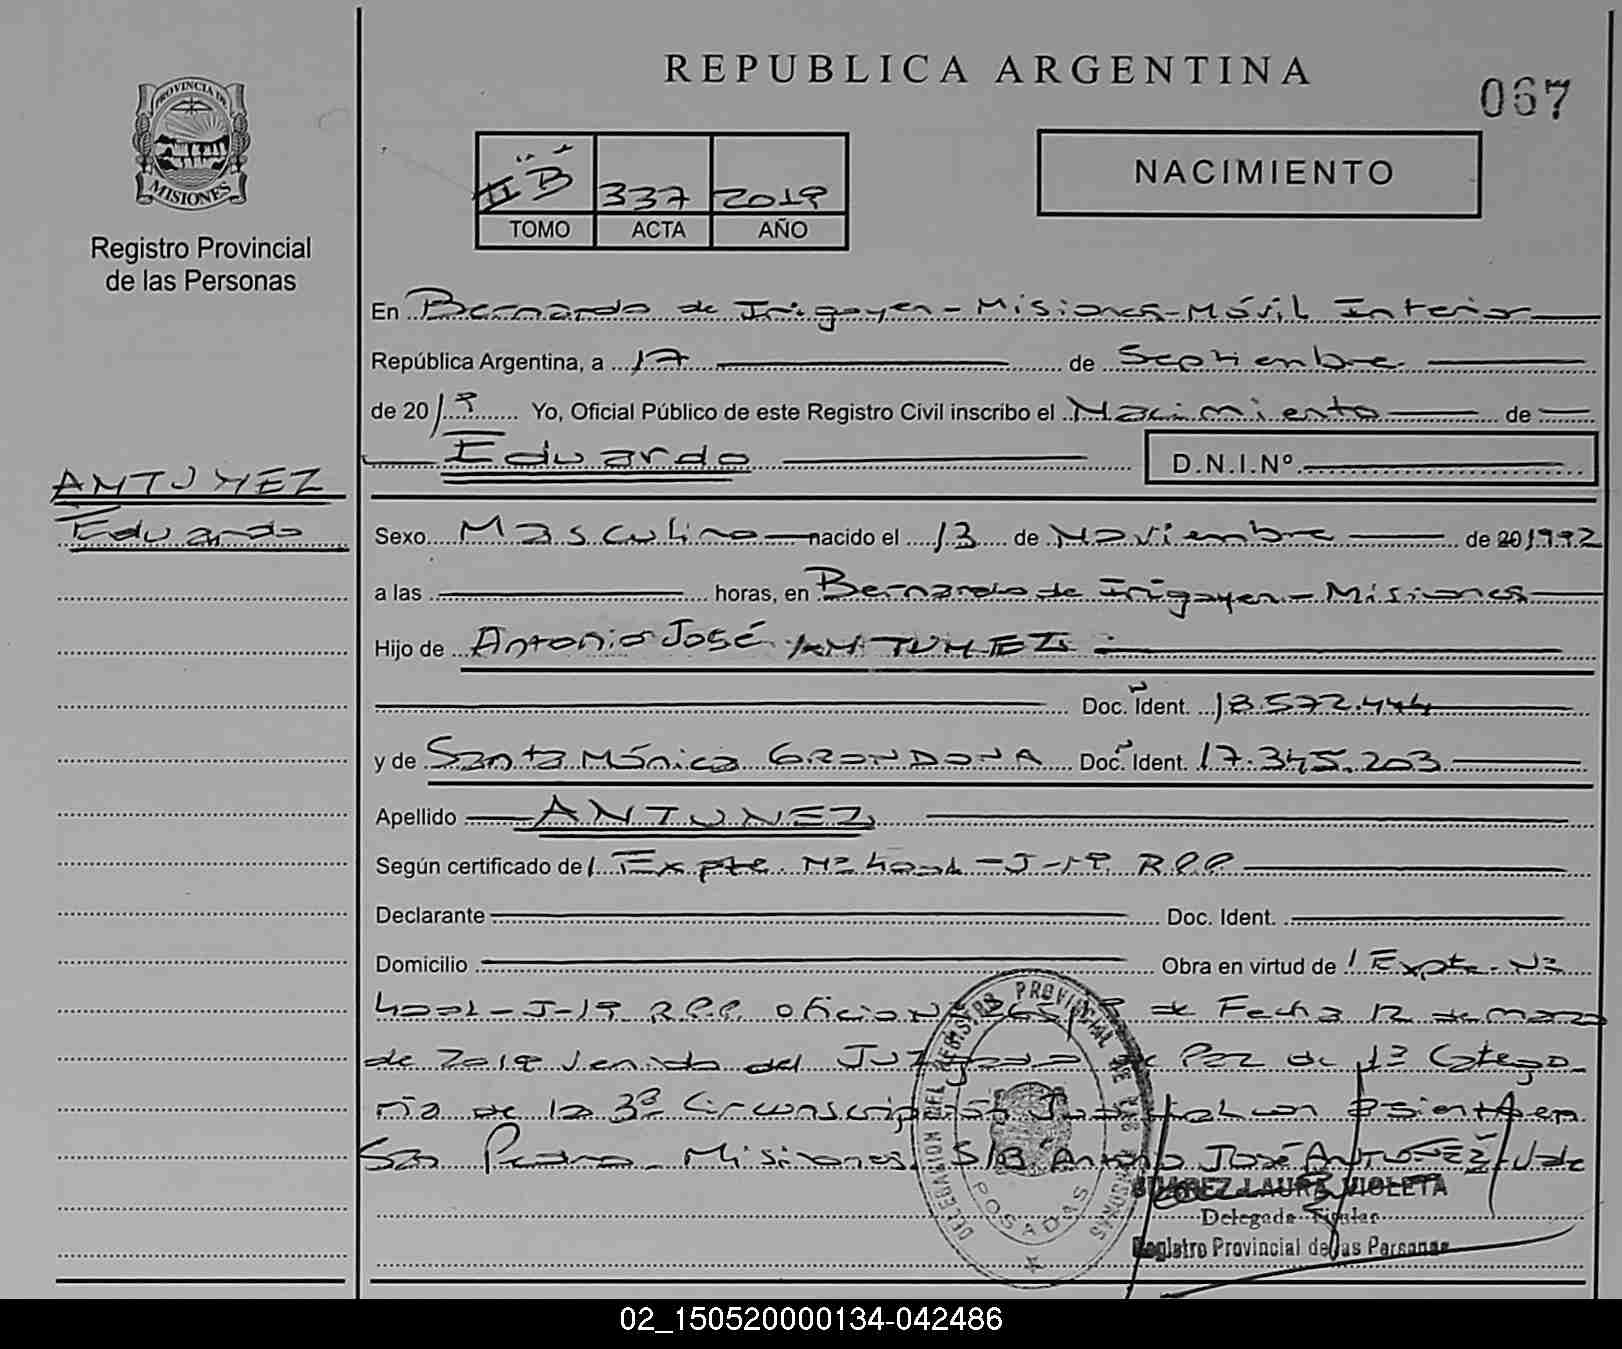 REPUBLICA ARGENTINA
067
PROVINCIA DE
MISIONES
Registro Provincial
de las Personas
II "B" 337 2019
TOMO ACTA AÑO
NACIMIENTO
En Bernardo de Irigoyen - Misiones - Móvil Interior
República Argentina, a 17 de Septiembre
de 2019 Yo, Oficial Público de este Registro Civil inscribo el Nacimiento de
Eduardo D.N.I.Nº
ANTUNEZ
Eduardo
Sexo Masculino nacido el 13 de Noviembre de 201992
a las horas, en Bernardo de Irigoyen - Misiones
Hijo de Antonio José ANTUNEZ
Doc. Ident. 18.572.444
y de Santa Mónica GRONDONA Doc. Ident. 17.345.203
Apellido ANTUNEZ
Según certificado de Expte. Nº 4001-J-19 R.P.P.
Declarante Doc. Ident.
Domicilio Obra en virtud de Expte. Nº
4001-J-19 R.P.P. Oficio Nº de Fecha 12 de marzo
de 2019 venido del Juzgado de Paz de 1ª Catego-
ría de la 3ª Circunscripción Judicial con asiento en
San Pedro - Misiones. S/B Antonio José ANTUNEZ - Vale
DELEGACION DEL REGISTRO PROVINCIAL DE LAS PERSONAS
POSADAS
LAURA VIOLETA
Delegada Titular
Registro Provincial de las Personas
02_150520000134-042486